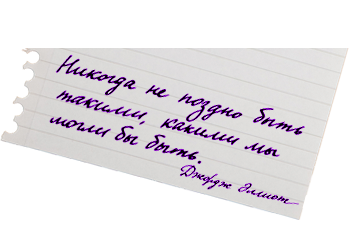 Никогда не поздно быть
такими, какими мы
могли бы быть.
Джордж Элиот